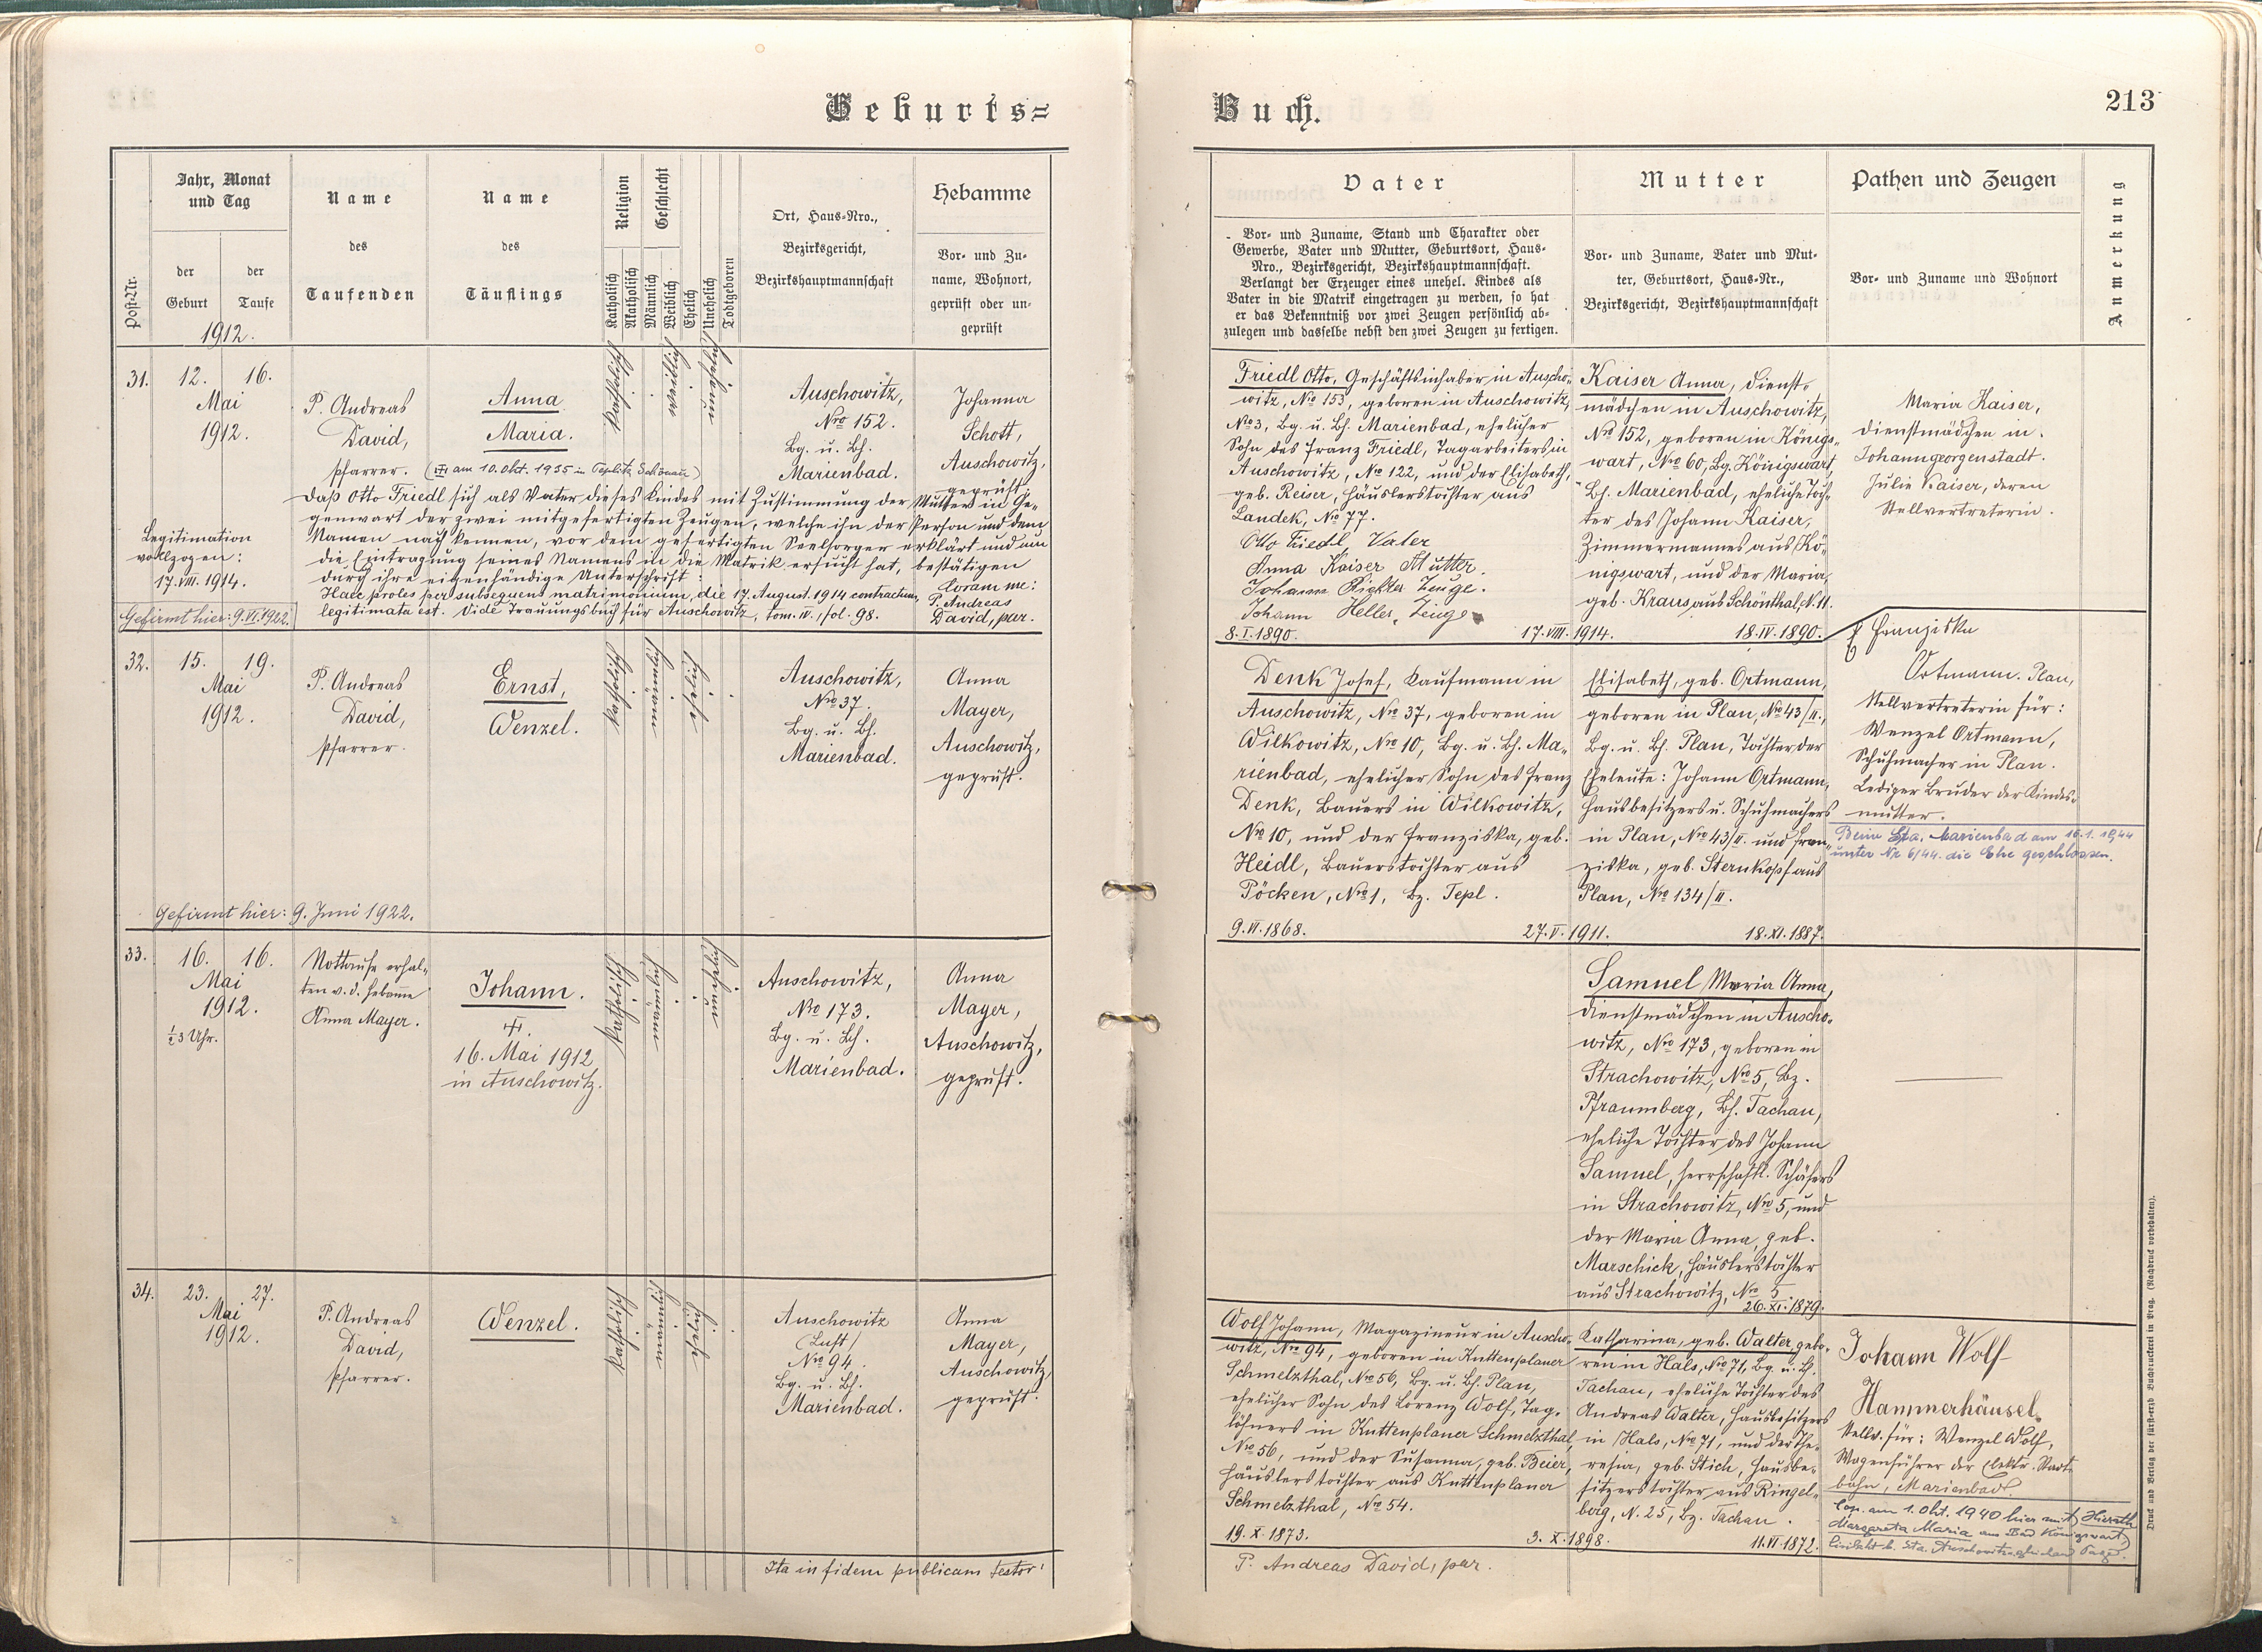 Geburts=
Buch.
213
Post-Nr.
Jahr, Monat
und Tag
der
Geburt
der
Taufe
1912.
Name
des
Taufenden
Name
des
Täuflings
Religion
Katholisch
Akatholisch
Geschlecht
Männlich
Weiblich
Ehelich
Unehelich
Todtgeboren
Ort, Haus-Nro.,
Bezirksgericht,
Bezirkshauptmannschaft
Hebamme
Vor- und Zu-
name, Wohnort,
geprüft oder un-
geprüft
Vater
Vor- und Zuname, Stand und Charakter oder
Gewerbe, Vater und Mutter, Geburtsort, Haus-
Nro., Bezirksgericht, Bezirkshauptmannschaft.
Verlangt der Erzeuger eines unehel. Kindes als
Vater in die Matrik eingetragen zu werden, so hat
er das Bekenntniß vor zwei Zeugen persönlich ab-
zulegen und dasselbe nebst den zwei Zeugen zu fertigen.
Mutter
Vor- und Zuname, Vater und Mut-
ter, Geburtsort, Haus-Nr.,
Bezirksgericht, Bezirkshauptmannschaft
Pathen und Zeugen
Vor- und Zuname und Wohnort
Anmerkung
31.
12.
16.
Mai
1912.
P. Andreas
David,
Pfarrer.
Anna
Maria.
(am 10. Okt. 1935 in Teplitz Schönau)
katholisch
weiblich
unehelich
Auschowitz,
Nro 152.
Bg. u. Bh.
Marienbad.
Johanna
Schott,
Auschowitz,
geprüft.
Daß Otto Friedl sich als Vater dieses Kindes mit Zustimmung der Mutter in Ge-
genwart der zwei mitgefertigten Zeugen, welche ihn der Person und dem
Namen nach kennen, vor dem gefertigten Seelsorger erklärt und um
die Eintragung seines Namens in die Matrik ersucht hat, bestätigen
durch ihre eigenhändige Unterschrift:
Legitimation
vollzogen:
17. VIII. 1914.
Haec proles per subsequens matrimonium, die 17. August. 1914 contractum,
legitimata est. Vide Trauungsbuch für Auschowitz, tom. IV. fol. 98.
Coram me:
P. Andreas
David, par.
Gefirmt hier: 9. VI. 1922.
Friedl Otto, Geschäftsinhaber in Auscho-
witz, No 153, geboren in Auschowitz,
No 3, Bg. u. Bh. Marienbad, ehelicher
Sohn des Franz Friedl, Tagarbeiters in
Auschowitz, No 122, und der Elisabeth,
geb. Reiser, Häuslerstochter aus
Landek, No 77.
Otto Friedl Vater
Anna Kaiser Mutter.
Johann Richter Zeuge.
Johann Heller, Zeuge
8. I. 1890.
17. VIII. 1914.
18. IV. 1890.
Kaiser Anna, Dienst-
mädchen in Auschowitz,
No 152, geboren in Königs-
wart, No 60, Bg. Königswart,
Bh. Marienbad, eheliche Toch-
ter des Johann Kaiser,
Zimmermannes aus Kö-
nigswart, und der Maria,
geb. Kraus aus Schönthal, N. 11.
Maria Kaiser,
Dienstmädchen in
Johanngeorgenstadt.
Julie Kaiser, deren
Stellvertreterin.
32.
15.
19.
Mai
1912.
P. Andreas
David,
Pfarrer.
Ernst,
Wenzel.
katholisch
männlich
ehelich
Auschowitz,
Nro 37.
Bg. u. Bh.
Marienbad.
Anna
Mayer,
Auschowitz,
geprüft.
Gefirmt hier: 9. Juni 1922.
Denk Josef, Kaufmann in
Auschowitz, Nro 37, geboren in
Wilkowitz, Nro 10, Bg. u. Bh. Ma-
rienbad, ehelicher Sohn des Franz
Denk, Bauers in Wilkowitz,
Nro 10, und der Franziska, geb.
Heidl, Bauerstochter aus
Pöcken, Nro 1, Bz. Tepl.
9. VI. 1868.
27. V. 1911.
18. XI. 1887.
Elisabeth, geb. Ortmann,
geboren in Plan, No 43/II.,
Bg. u. Bh. Plan, Tochter der
Eheleute: Johann Ortmann,
Hausbesitzers u. Schuhmachers
in Plan, Nro 43/II. und Fran-
ziska, geb. Sternkopf aus
Plan, Nro 134/II.
Franziska
Ortmann. Plan,
Stellvertreterin für:
Wenzel Ortmann,
Schuhmacher in Plan.
Lediger Bruder der Kindes-
mutter.
Beim Sta. Marienbad am 16.1.1944
unter Nr. 6/44. die Ehe geschlossen.
33.
16.
16.
Mai
1912.
½3 Uhr.
Nottaufe erhal-
ten v. d. Hebamme
Anna Mayer.
Johann.
16. Mai 1912
in Auschowitz.
katholisch
männlich
unehelich
Auschowitz,
Nro 173.
Bg. u. Bh.
Marienbad.
Anna
Mayer,
Auschowitz,
geprüft.
Samuel Maria Anna,
Dienstmädchen in Auscho-
witz, Nro 173, geboren in
Strachowitz, Nro 5, Bz.
Pfraumberg, Bh. Tachau,
eheliche Tochter des Johann
Samuel, herrschaftl. Schäfers
in Strachowitz, Nro 5, und
der Maria Anna, geb.
Marschick, Häuslerstochter
aus Strachowitz, No 5.
26. XI. 1879.
34.
23.
27.
Mai
1912.
P. Andreas
David,
Pfarrer.
Wenzel.
katholisch
männlich
ehelich
Auschowitz
(Lust)
Nro 94.
Bg. u. Bh.
Marienbad.
Anna
Mayer,
Auschowitz,
geprüft.
Wolf Johann, Magazineur in Auscho-
witz, Nro 94, geboren in Kuttenplaner
Schmelzthal, No 56, Bg. u. Bh. Plan,
ehelicher Sohn des Lorenz Wolf, Tag-
löhners in Kuttenplaner Schmelzthal,
No 56, und der Susanna, geb. Beier,
Häuslerstochter aus Kuttenplaner
Schmelzthal, No 54.
19. X. 1873.
3. X. 1898.
11. VI. 1872.
Katharina, geb. Walter, gebo-
ren in Hals, No 71, Bg. u. Bh.
Tachau, eheliche Tochter des
Andreas Walter, Hausbesitzers
in Hals, Nro 71, und der The-
resia, geb. Stich, Hausbe-
sitzerstochter aus Ringel-
berg, N. 25, Bz. Tachau.
Johann Wolf
Hammerhäusel.
Stellv. für: Wenzel Wolf,
Wagenführer der elektr. Stadt-
bahn, Marienbad.
Cop. am 1. Okt. 1940 hier mit Hierath
Margareta Maria aus Bad Königswart,
Ita in fidem publicam testor:
P. Andreas David, par.
Druck und Verlag der fürst-erzb Buchdruckerei in Prag. (Nachdruck vorbehalten).